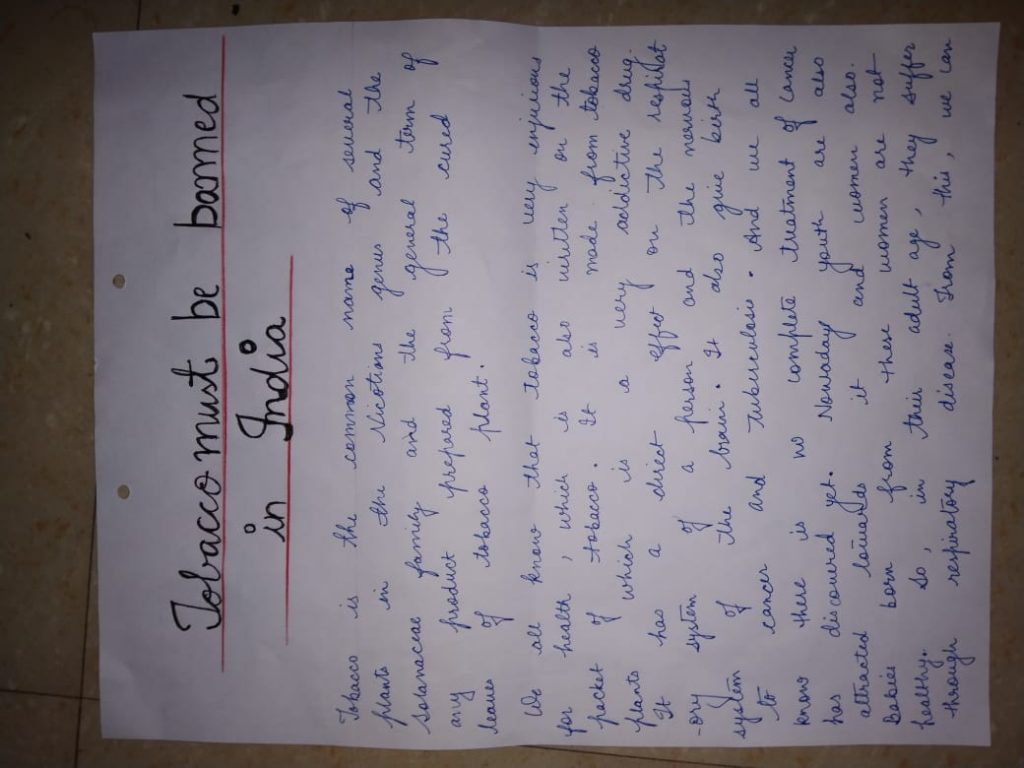 Tobacco must be banned
in India
Tobacco is the common name of several
plants in the Nicotiana genus and the
Solanaceae family and the general term of
any product prepared from the cured
leaves of tobacco plant.
We all know that tobacco is very injurious
for health, which is also written on the
packet of tobacco. It is made from tobacco
plants which is a very addictive drug
It has a direct effect on the respirat
-ory system of a person and the nervous
system of the brain. It also give birth
to cancer and Tuberculosis. And we all
know there is no complete treatment of Cancer
has discovered yet. Nowaday youth are also
attracted towards it and women also.
Babies born from these women are not
healthy. So, in their adult age, they suffer
through respiratory disease. From this, we can